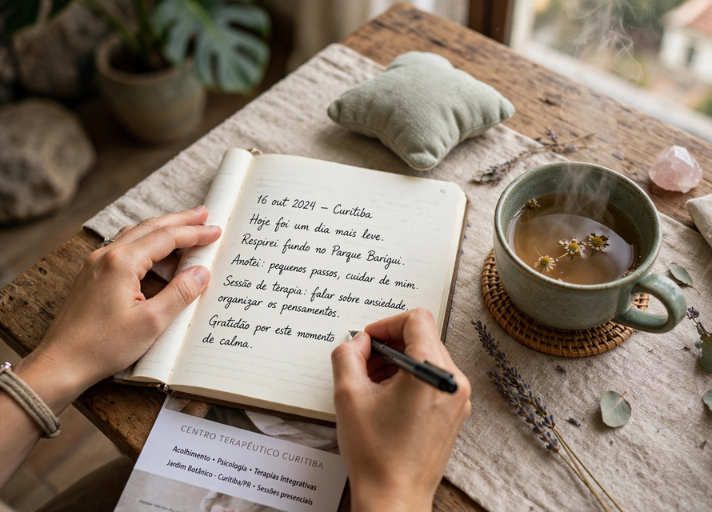 16 out 2024 – Curitiba
Hoje foi um dia mais leve.
Respirei fundo no Parque Barigui.
Anotei: pequenos passos, cuidar de mim.
Sessão de terapia: falar sobre ansiedade,
organizar os pensamentos.
Gratidão por este momento
de calma.
CENTRO TERAPÊUTICO CURITIBA
Acolhimento • Psicologia • Terapias Integrativas
Jardim Botânico - Curitiba/PR • Sessões presenciais